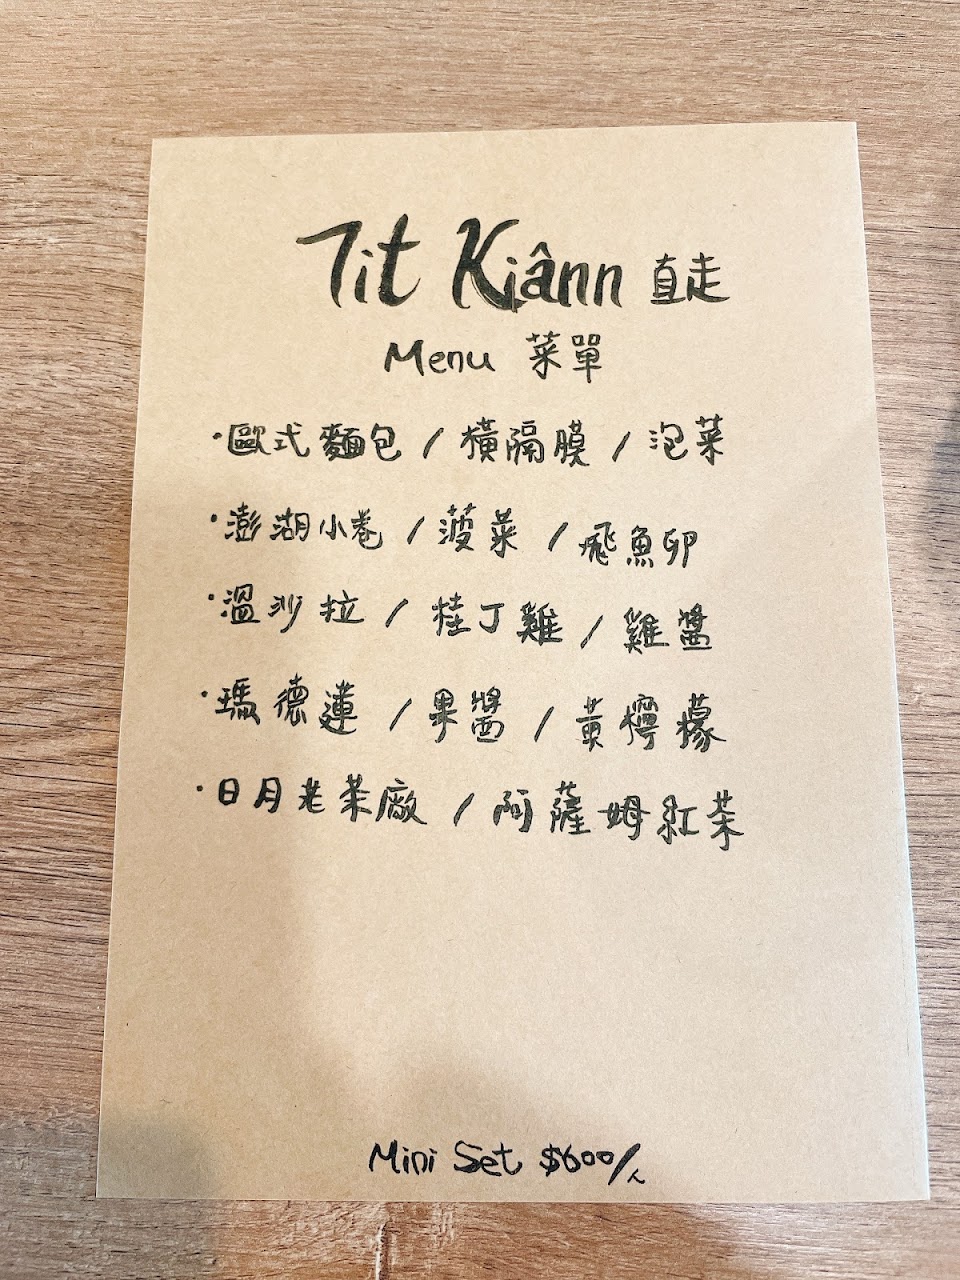 Tit Kiânn 直走
Menu 菜單
·歐式麵包 / 橫隔膜 / 泡菜
·澎湖小卷 / 菠菜 / 飛魚卵
·溫沙拉 / 桂丁雞 / 雞醬
·瑪德蓮 / 果醬 / 黃檸檬
·日月老茶廠 / 阿薩姆紅茶
Mini Set $600/人